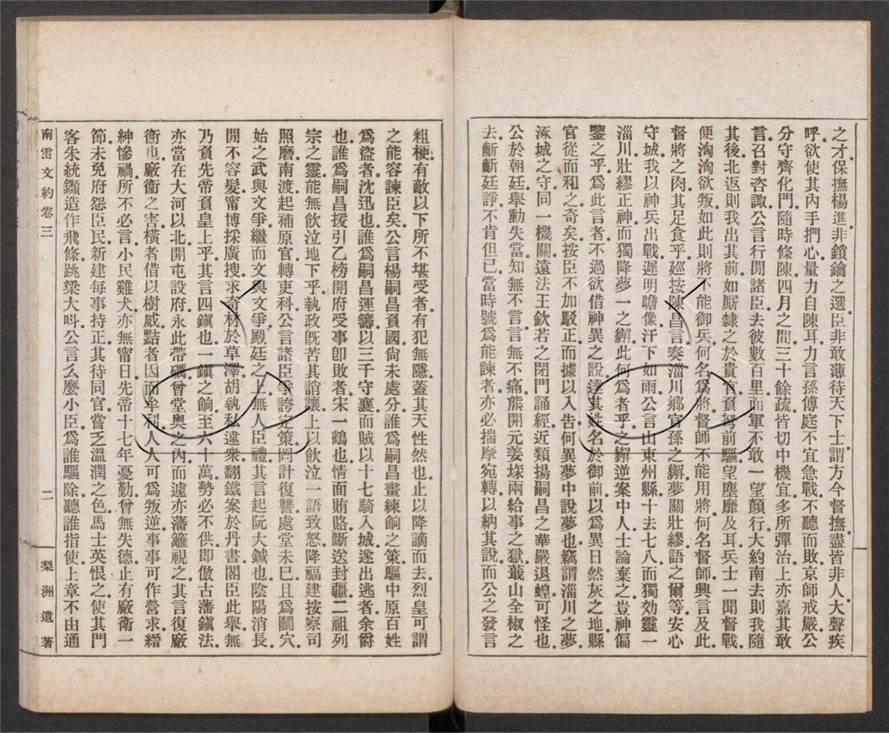 之才保撫楊進非鎖鑰之選臣非敢薄待天下士謂方今督撫盡皆非人大聲疾
呼欲使其內手捫心量力自陳耳力言孫傅庭不宜急戰不聽而敗京師戒嚴公
分守齊化門隨時條陳四月之間三十餘疏皆切中機宜多所彈治上亦嘉其敢
言召對咨諏公言行間諸臣去彼數百里而軍不敢一望顏行大約南去則我隨
其後北返則我出其前如厮隸之於貴官負弩前驅望塵靡及耳兵士一聞督戰
便洶洶欲叛如此則將不能御兵何名為將督師不能用將何名督師興言及此
督將之肉其足食乎巡按陳昌言奏淄川鄉官孫之獬夢關壯繆語之爾等安心
守城我以神兵出戰遲明瞻像汗下如雨公言山東州縣十去七八而獨効靈一
淄川壯繆正神而獨降夢一之獬此何為者乎之獬逆案中人士論棄之豈神偏
鑒之乎為此言者不過欲借神異之說達其姓名於御前以為異日然灰之地縣
官從而和之奇矣按臣不加駁正而據以入告何異夢中說夢也竊謂淄川之夢
涿城之守同一機關遠法王欽若之閉門誦經近類揚嗣昌之華嚴退蝗可怪也
公於朝廷舉動失當知無不言言無不痛熊開元姜埰兩給事之獄蕺山全椒之
去齗齗廷諍不肯但已當時號為能諫者亦必揣摩宛轉以納其說而公之發言
粗梗有敵以下所不堪受者有犯無隱蓋其天性然也止以降謫而去烈皇可謂
之能容諫臣矣公言楊嗣昌負國尙未處分誰為嗣昌畫練餉之策驅中原百姓
為盜者沈迅也誰為嗣昌運籌以三千守襄而賊以十七騎入城遂出逃者余爵
也誰為嗣昌援引乙榜開府受事卽敗者宋一鶴也情面賄賂斷送封疆二祖列
宗之靈能無飲泣地下乎執政旣苦其誚讓上以飲泣一語致怒降福建按察司
照磨南渡起補原官轉吏科公言諸臣爭誇定策罔計復讐處堂未已且為鬭穴
始之武與文爭繼而文與文爭殿廷之上無人臣禮其言起阮大鋮也陰陽消長
間不容髮甯博採廣搜求奇材於草澤胡執私違衆翻鐵案於丹書閣臣此舉無
乃負先帝負皇上乎其言四鎭也一鎭之餉至六十萬勢必不供卽倣古藩鎭法
亦當在大河以北開屯設府永此帶礪曾堂奧之內而遽亦藩籬視之其言復廠
衛也廠衛之害橫者借以樹威黠者因而牟利人人可為叛逆事事可作營求縉
紳慘禍所不必言小民雞犬亦無甯日先帝十七年憂勤曾無失德止有廠衛一
節未免府怨臣民新建每事持正其待同官嘗乏溫潤之色馬士英恨之使其門
客朱統䥧造作飛條跳梁大叫公言么麼小臣為誰驅除聽誰指使上章不由通
南雷文約卷三
二
梨洲遺著